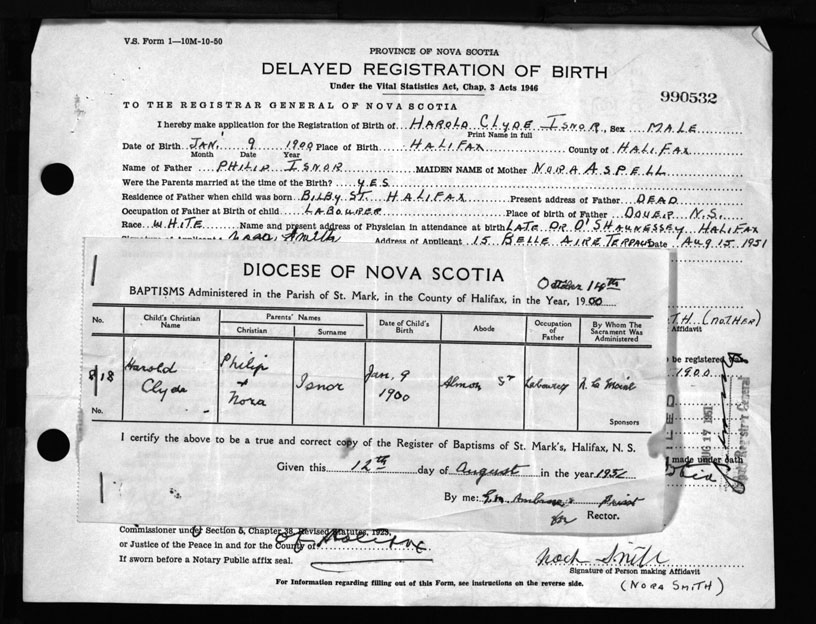 V.S. Form 1—10M-10-50
PROVINCE OF NOVA SCOTIA
DELAYED REGISTRATION OF BIRTH
Under the Vital Statistics Act, Chap. 3 Acts 1946
990532
TO THE REGISTRAR GENERAL OF NOVA SCOTIA
I hereby make application for the Registration of Birth of HAROLD CLYDE ISNOR, Sex MALE
Print Name in full
Date of Birth JAN. 9 1900 Place of Birth HALIFAX County of HALIFAX
Month Date Year
Name of Father PHILIP ISNOR MAIDEN NAME of Mother NORA ASPELL
Were the Parents married at the time of the Birth? YES
Residence of Father when child was born BILBY ST. HALIFAX Present address of Father DEAD
Occupation of Father at Birth of child LABOURER Place of birth of Father N.S.
Race WHITE Name and present address of Physician in attendance at birth LATE DR O'SHAUNESSEY HALIFAX
Smith Address of Applicant 15 BELLE AIRE TERRACE Date AUG 15 1951
DIOCESE OF NOVA SCOTIA
October 14th
BAPTISMS Administered in the Parish of St. Mark, in the County of Halifax, in the Year, 1900
No. Child's Christian Name Parents' Names Christian Surname Date of Child's Birth Abode Occupation of Father By Whom The Sacrament Was Administered
818 Harold Clyde Philip + Nora Isnor Jan. 9 1900 Almon St Labourer N. Le Moine
No. Sponsors
I certify the above to be a true and correct copy of the Register of Baptisms of St. Mark's, Halifax, N. S.
Given this 12th day of August in the year 1951
By me: Priest
for Rector.
TH (MOTHER)
Affidavit
be registered was
1900
FILED
AUG 17 1951
Registrar General
made under oath
Commissioner under Section 5, Chapter 38, Revised Statutes, 1923,
or Justice of the Peace in and for the County of of Halifax
If sworn before a Notary Public affix seal.
Signature of Person making Affidavit
For Information regarding filling out of this Form, see instructions on the reverse side.
(NORA SMITH)